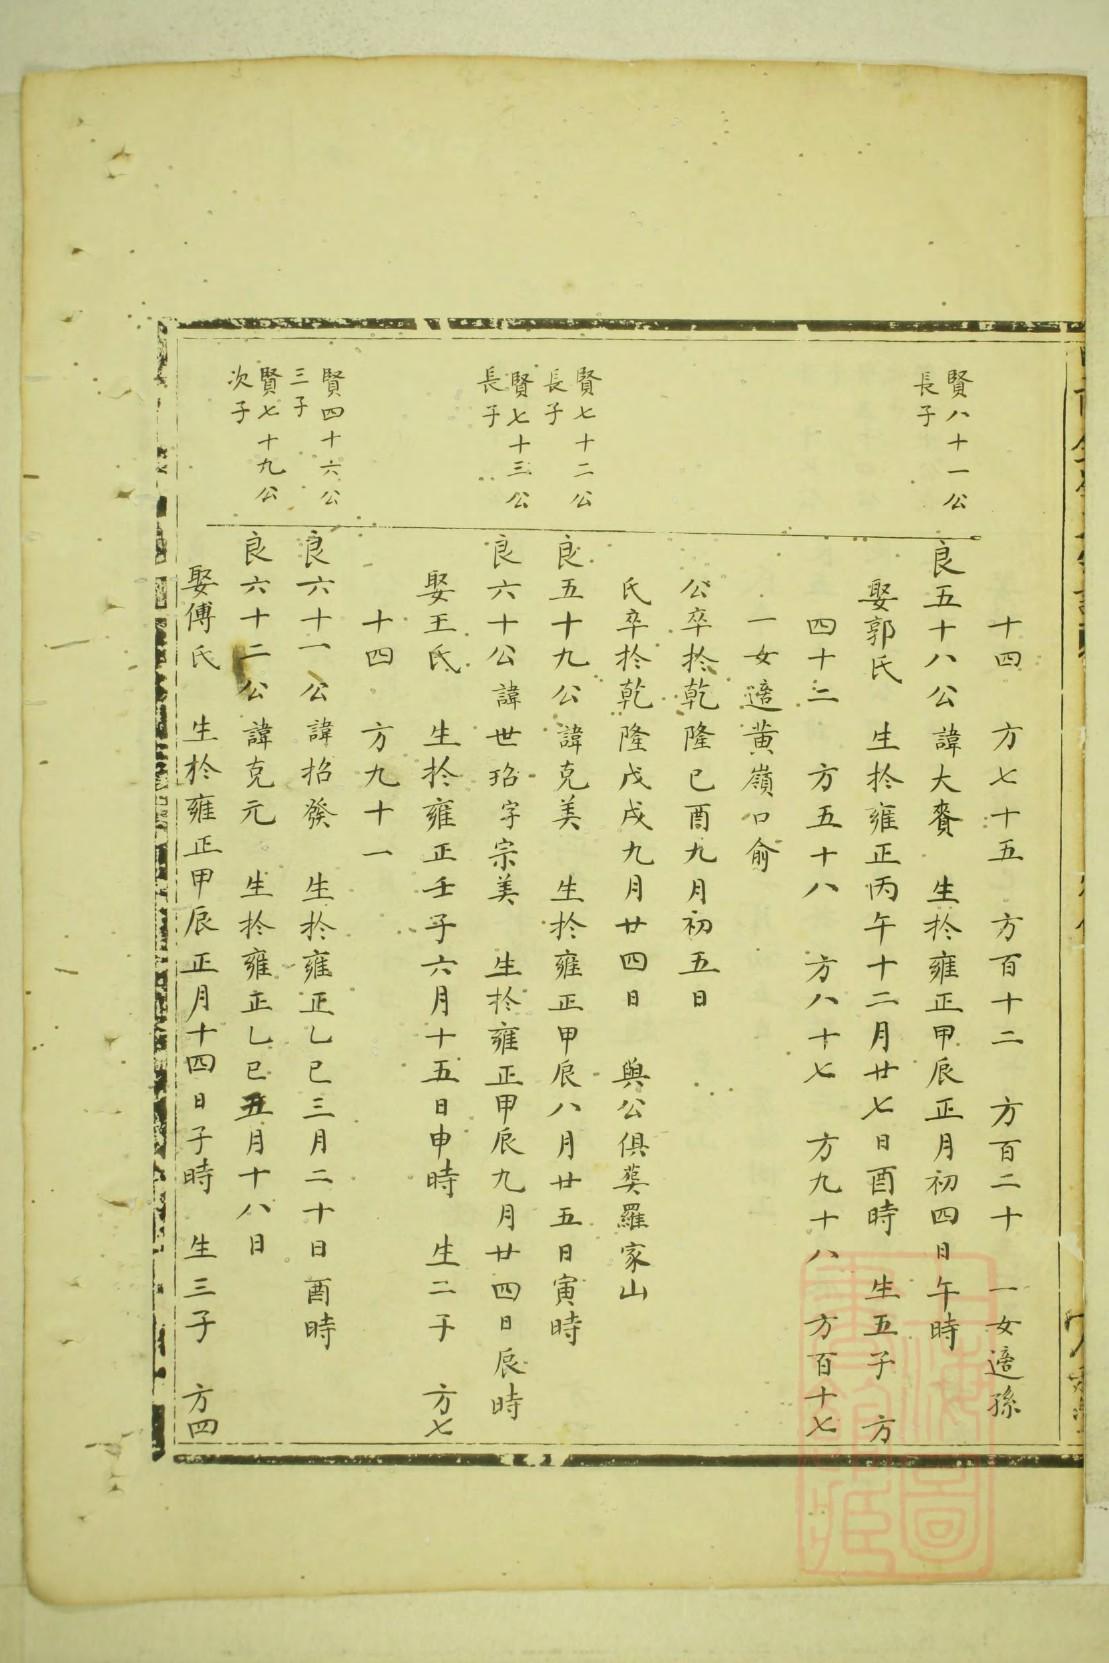 十四 方七十五 方百十二 方百二十 一女適孫
賢八十一公
長子
良五十八公諱大賚 生於雍正甲辰正月初四日午時
娶郭氏 生於雍正丙午十二月廿七日酉時 生五子 方
四十二 方五十八 方八十七 方九十八 方百十七
一女適黄嶺口俞
公卒於乾隆己酉九月初五日
氏卒於乾隆戊戌九月廿四日 與公俱塟羅家山
賢七十二公
長子
良五十九公諱克美 生於雍正甲辰八月廿五日寅時
賢七十三公
長子
良六十公諱世玿字宗美 生於雍正甲辰九月廿四日辰時
娶王氏 生於雍正壬子六月十五日申時 生二子 方七
十四 方九十一
賢四十六公
三子
良六十一公諱招發 生於雍正乙巳三月二十日酉時
賢七十九公
次子
良六十二公諱克元 生於雍正乙巳五月十八日
娶傅氏 生於雍正甲辰正月十四日子時 生三子 方四